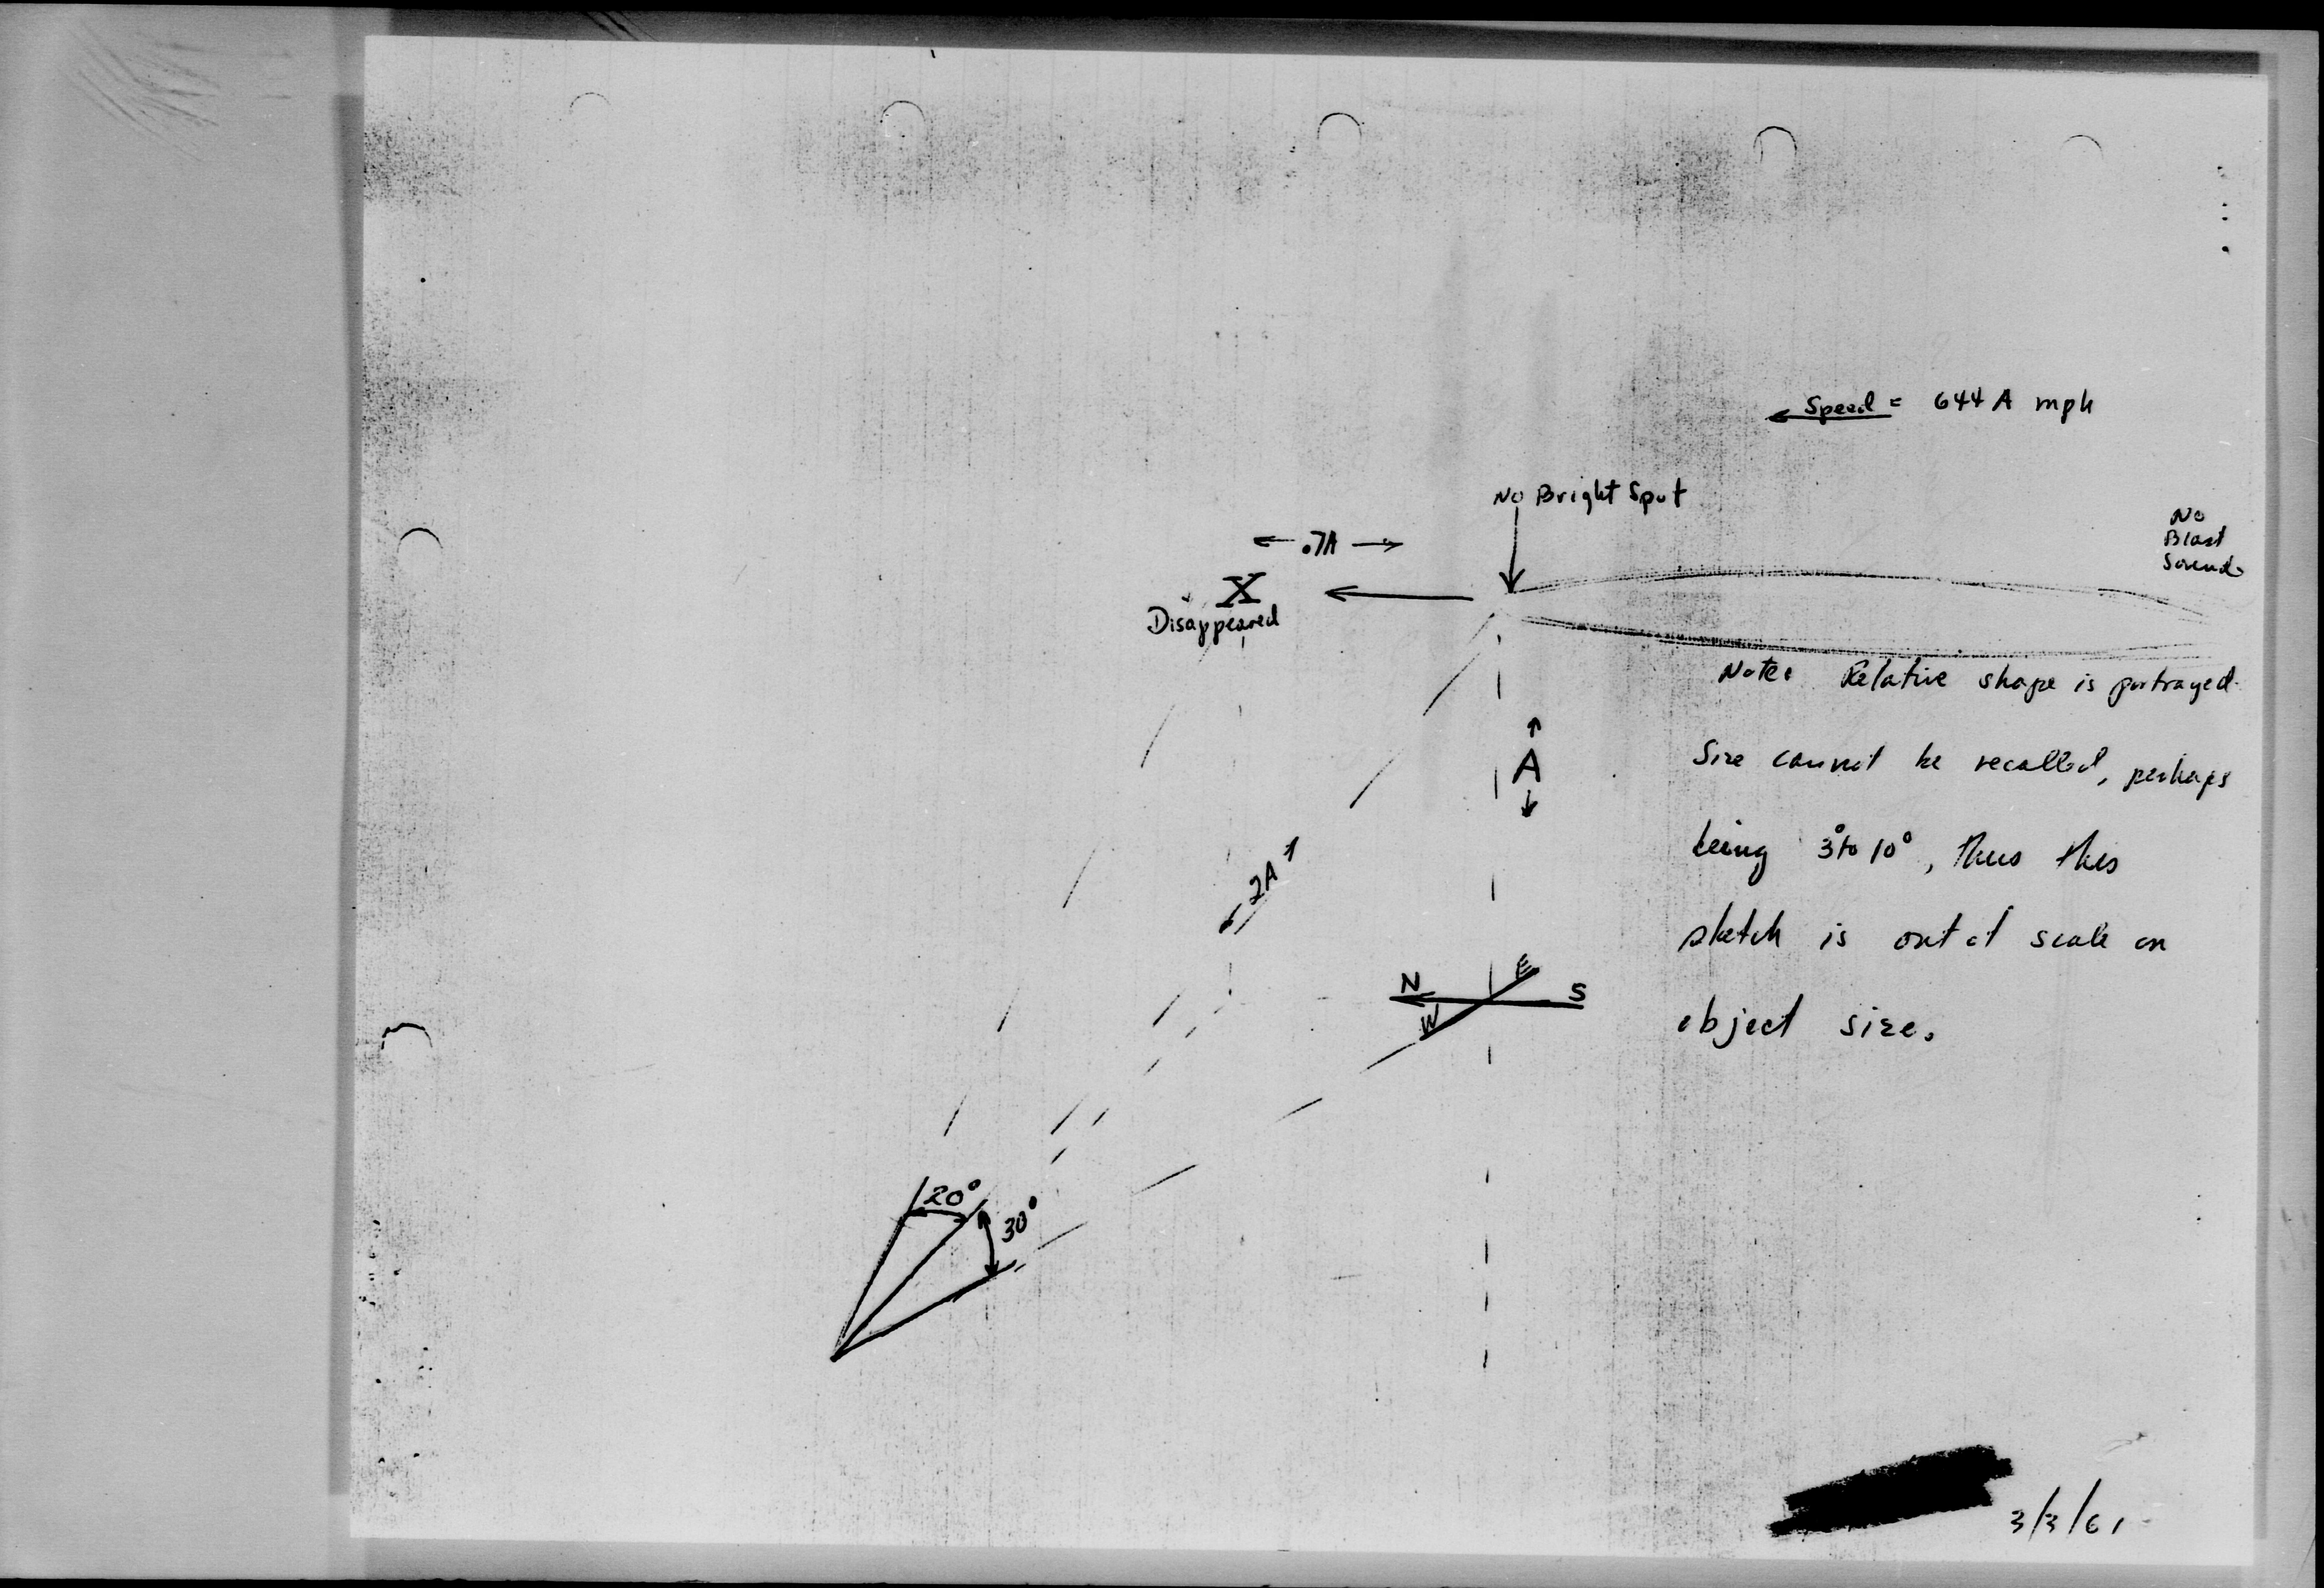 Speed = 644 A mph
No Bright Spot
No
Blast
Sound.
.7A
X
Disappeared
Note: Relative shape is portrayed.
Size cannot be recalled, perhaps
being 3° to 10°, thus this
sketch is out of scale on
object size.
A
2A
N
E
S
W
20°
30°
3/3/61